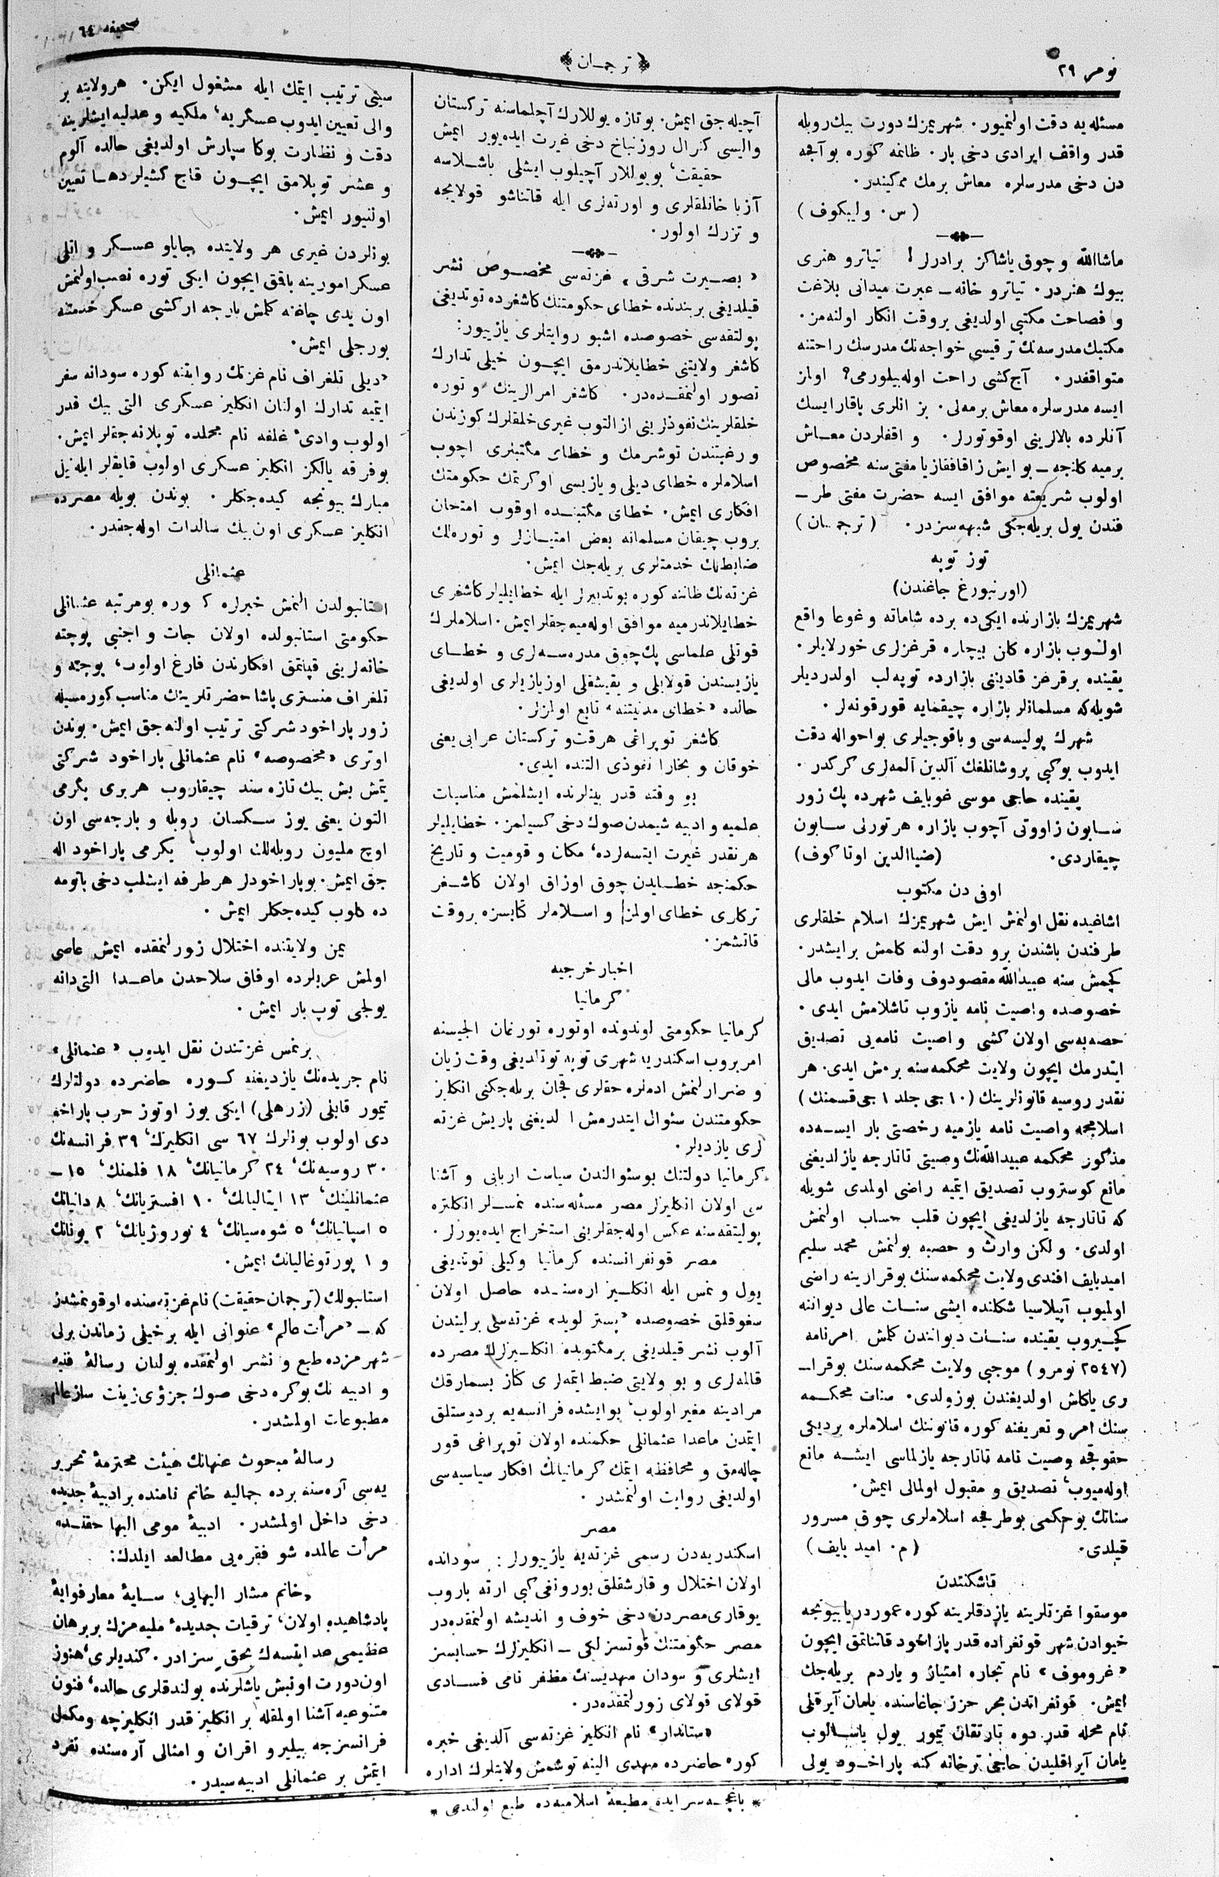 نومر ٢٩
﴿ ترجمان ﴾
صحیفه ٦٤
مسئله یه دقت اولنمیور. شهریمزك دورت بیك روبله
قدر واقف ایرادی دخی بار. ظانمه كوره بو آقچه
دن دخی مدرسلره معاش برمك ممكندر.
(س. ولیبكوف)
ماشاالله و چوق یاشاكز برادرلر! تیاترو هنری
بیوك هنردر. تیاترو خانه ــ عبرت میدانی بلاغت
و فصاحت مكتبی اولدیغی بروقت انكار اولنه‌من.
مكتبك مدرسه‌نك ترقیسی خواجه‌نك مدرسك راحتنه
متواقفدر. آج كشی راحت اوله بیلورمی؟ اولار
ایسه مدرسلره معاش برمه‌لی. بز انلری باقار ایسك
آنلرده بالالرینی اوقوتورلر. و اقفلردن معاش
برمیه كلنجه ــ بو ایش زاقافقازیا مفتی سنه مخصوص
اولوب شریعته موافق ایسه حضرت مفتی طر ــ
فندن یول بریله‌جكی شبهه‌سزدر. (ترجمان)
توز توبه
(اورنبورغ جاغندن)
شهریمزك بازارنده ایكی‌ده برده شاماته و غوعا واقع
اولوب بازاره كلن بیچاره قرغزلری خورلایلر.
یقینده برقرغز قادینی بازارده توپه‌لب اولدردیلر
شویله‌كه مسلمانلر بازاره چیقمایه قورقونه‌لر.
شهرك پولیسه‌سی و باقوجیلری بو احواله دقت
ایدوب بوكبی پروشانلغك آلدین آلمه‌لری كركدر.
یقینده حاجی موسی غوبایف شهرده پك زور
صابون زاووتی آچوب بازاره هر تورلی سابون
چیقاردی. (ضیاالدین اوتاكوف)
اوفی دن مكتوب
اشاغیده نقل اولنمش ایش شهریمزك اسلام خلقلری
طرفندن باشندن برو دقت اولنه كلمش برایشدر.
كچمش سنه عبیدالله مقصودوف وفات ایدوب مالی
خصوصده واصیت نامه یازوب تاشلامش ایدی.
حصه‌یه‌سی اولان كشی واصیت نامه‌یی تصدیق
ایتدرمك ایچون ولایت محكمه‌سنه برمش ایدی. هر
نقدر روسیه قانونلرینك (١٠ جی جلد ١ جی قسمنك)
اسلامچه واصیت نامه یازمیه رخصتی بار ایسه‌ده
مذكور محكمه عبیدالله‌نك وصیتی تاتارچه یازلدیغنی
مانع كوستروب تصدیق ایتمیه راضی اولمدی شویله
كه تاتارچه یازلدیغی ایچون قلب حساب اولنمش
اولدی. ولكن وارث و حصیه بولنمش محمد سلیم
امیدبایف افندی ولایت محكمه‌سنك بو قرارینه راضی
اولمیوب آپیلاسیا شكلنده ایشی سنات عالی دیواننه
كچیروب یقینده سنات دیوانندن كلمش امرنامه
(٢٥٤٧ نومرو) موجبی ولایت محكمه‌سنك بوقرا ــ
ری یاكاش اولدیغندن بوزولدی. سنات محكمه
سنك امر و تعریفنه كوره قانوننك اسلاملره بردیكی
حقوقجه وصیت نامه تاتارجه یازلماسی ایشه مانع
اوله‌میوب، تصدیق و مقبول اولمالی ایمش.
سناتك بو حكمی بو طرفچه اسلاملری چوق مسرور
قیلدی. (م. امید بایف)
تاشكنتدن
موسقوا غزتلرینه یازدقلرینه كوره عمودریا بیونجه
خیوادن شهر قونغراده قدر پاراخود قاتناتمق ایچون
«غروموف» نام تجاره امتیاز و یاردم بریله‌جك
ایمش. قونغراتدن بحر حزز جاغاسنده یامان آیرقلی
نام محله قدر دوه تارتقان تیمور یول یاسالوب
یامان آیراقلیدن حاجی ترخانه كنه پاراخود یولی
آچیله جق ایمش. بو تازه یوللارك آچلماسنه تركستان
والیسی كنرال روزنباخ دخی غیرت ایده‌یور ایمش
حقیقت، بو یوللار آچیلوب ایشلی باشلاسه
آزیا خانلقلری و اورته‌لری ایله قاتناشو قولایجه
و تزرك اولور.
«بصیرت شرقی» غزته‌سی مخصوص نشر
قیلدیغی بربندنده خطای حكومتنك كاشغرده توتدیغی
پولتقه‌سی خصوصده اشبو روایتلری یازیور:
كاشغر ولایتنی خطایلاندرمق ایچون خیلی تدارك
تصور اولنمقده‌در. كاشغر امرالرینك و توره
خلقلرینك نفوذلرینی از التوب غیری خلقلرك كوزندن
و رغبتندن توشرمك و خطای مكتبلری اچوب
اسلاملره خطای دیلی و یازیسی اوكرتمك حكومتك
افكاری ایمش. خطای مكتبنده اوقوب امتحان
بروب چیقان مسلمانه بعض امتیازلر و توره‌لك
ضابطلك خدمتلری بریله‌جك ایمش.
غزته‌نك ظاننه كوره بو تدبیرلر ایله خطایلیلر كاشغری
خطایلاندرمیه موافق اوله‌میه جقلر ایمش. اسلاملرك
قوتلی علماسی پك چوق مدرسه‌لری و خطای
یازیسندن قولایلی و یقیشقلی اوز یازیلری اولدیغی
حالده «خطای مدنیتنه» تابع اولنلر.
كاشغر توپراغی هر قت و تركستان عرابی یعنی
خوقان و بخارا نفوذی التنده ایدی.
بو وقته قدر بینلرنده ایشلنمش مناسبات
علمیه و ادبیه شیمدن صوك دخی كسیلمز. خطایلیلر
هر نقدر غیرت ایتسه‌لرده، مكان و قومیت و تاریخ
حكمنجه خطایدن چوق اوزاق اولان كاشغر
تركلری خطای اولمز و اسلاملر كتابسزه بروقت
قاتشمز.
اخبار خرجیه
كرمانیا
كرمانیا حكومتی لوندونده اوتوره تورغان الچیسنه
امر بروب اسكندریه شهری توپه توتلدیغی وقت زیان
و ضرارلنمش ادملره حقلری قچان بریله جكنی انكلیز
حكومتندن سئوال ایتدرمش الدیغی پاریش غزته
لری یازدیلر.
كرمانیا دولتنك بوسئوالندن سیاست اربابی و آشنا
سی اولان انكلیزلر مصر مسئله سنده نمسلر انكلتره
پولیتقه‌سنه عكس اوله جقلرینی استخراج ایده‌یورلر.
مصر قونفرانسنده كرمانیا وكیلی توتدیغی
یول و نمس ایله انكلیز اره‌سنده حاصل اولان
سغوقلق خصوصده «پستر لوید» غزته‌سی برلیندن
آلوب نشر قیلدیغی برمكتوبده انكلیزلرك مصرده
قالمه‌لری و بو ولایتی ضبط ایتمه‌لری كناز بسمارقك
مرادینه مغیر اولوب، بوایشده فرانسه‌یه بردوستلق
ایتمدن ماعدا عثمانلی حكمنده اولان توپراغی قور
چاله‌مق و محافظه ایتمك كرمانیانك افكار سیاسیه‌سی
اولدیغی روایت اولنمشدر.
مصر
اسكندریه‌دن رسمی غزته‌یه یازیورلر: سودانده
اولان اختلال و قارشقلق بورونغی كبی ارته باروب
یوقاری مصردن دخی خوف و اندیشه اولنمقده‌در
مصر حكومتنك قوتسزلكی ــ انكلیزلرك حسابسز
ایشلری و سودان مهدیسنك مظفر نامی فسادی
قولای قولای زورلنمقده‌در.
«ستاندار» نام انكلیز غزته‌سی آلدیغی خبره
كوره حاضرده مهدی الینه توشمش ولایتلرك اداره
سینی ترتیب ایتمك ایله مشغول ایكن. هرولایته بز
والی تعیین ایدوب عسكریه، ملكیه و عدلیه ایشلرینه
دقت و نظارت بوكا سپارش اولدیغی حالده آلوم
و عشر توپلامق ایچون قاچ كشیلر دها تعیین
اولنیور ایمش.
بونلردن غیری هر ولایتده جایاو عسكر و اتلی
عسكر امورینه باقق ایچون ایكی توره نصب اولنمش
اون یدی چاغنه كلمش بارجه ار كشی عسكر خدمتنه
بورجلی ایمش.
«دیلی تلغراف نام غزته‌نك روایتنه كوره سودانه سفر
ایتمیه تدارك اولنان انكلیز عسكری التی بیك قدر
اولوب وادی غلفه نام محلده توپلانه جقلر ایمش.
بوفرقه یالكز انكلیز عسكری اولوب قایقلر ایله نیل
مبارك بیونجه كیده‌جكلر. بوندن بویله مصرده
انكلیز عسكری اون بیك سالدات اوله‌جقدر.
عثمانلی
استانبولدن المنش خبرلره كوره بومرتبه عثمانلی
حكومتی استانبولده اولان جات و اجنبی پوچته
خانه‌لرینی قپاتمق افكارندن فارغ اولوب، پوچته و
تلغراف منستری پاشا حضرتلرینك مناسب كورمسیله
زور پاراخود شركتی ترتیب اولنه جق ایمش. بوندن
اوتری «مخصوصه» نام عثمانلی پاراخود شركتی
یتمش بش بیك تازه سند چیقاروب هربری یكرمی
التون یعنی یوز سكسان روبله و پارچه‌سی اون
اوچ ملیون روبله‌لك اولوب، یكرمی پاراخود اله
جق ایمش. بوپاراخودلر هر طرفه ایشلب دخی باتومه
ده كلوب كیده‌جكلر ایمش.
یمن ولایتنده اختلال زورلنمقده ایمش عاصی
اولمش عربلرده اوفاق سلاحدن ماعدا التی دانه
یولجی توپ بار ایمش.
برنمس غزتندن نقل ایدوب «عثمانلی»
نام جریده‌نك یازدیغنه كوره حاضرده دولتلرك
تیمور قابلی (زرهلی) ایكی یوز اوتوز حرب پاراخو
دی اولوب بونلرك ٦٧ سی انكلیزك، ٣٩ فرانسه‌نك
٣٠ روسیه‌نك، ٢٤ كرمانیانك، ١٨ فلمنك، ١٥ ــ
عثمانلینك، ١٣ ایتالیانك، ١٠ افستریانك، ٨ دانیانك
٥ اسپانیانك، ٥ شوه‌سیانك، ٤ نوروژیانك، ٢ یونانك
و ١ پورتوغالیانك ایمش.
استانبولك (ترجمان حقیقت) نام غزته‌سنده اوقونمشدر
كه ــ «مرأت عالم» عنوانی ایله برخیلی زماندن برلی
شهرمزده طبع و نشر اولنمقده بولنان رسالهٔ فنیه
و ادبیه نك بوكره دخی صوك جزؤی زینت ساز عالم
مطبوعات اولمشدر.
رسالهٔ مبحوث عنهانك هیئت محترمهٔ تحریر
یه‌سی آره‌سنه برده جمالیه خانم نامنده برادیبهٔ جدیده
دخی داخل اولمشدر. ادیبهٔ مومی الیها حقنده
مرأت عالمده شو فقره‌یی مطالعه ایلدك:
«خانم مشار الیهایی، سایهٔ معارفوایهٔ
پادشاهیده اولان، ترقیات جدیدهٔ ملیه‌مزك بر برهان
عظیمی عد ایتسه‌ك بحق سزادر. كندیلری، هنوز
اون دورت اونبش یاشلرنده بولندقلری حالده، فنون
متنوعیه آشنا اولمقله بر انكلیز قدر انكلیزچه و مكمل
فرانسزجه بیلیر و اقران و امثالی آره‌سنده تفرد
ایتمش بر عثمانلی ادیبه‌سیدر.
* باغچه‌سرایده مطبعهٔ اسلامیه‌ده طبع اولندی *